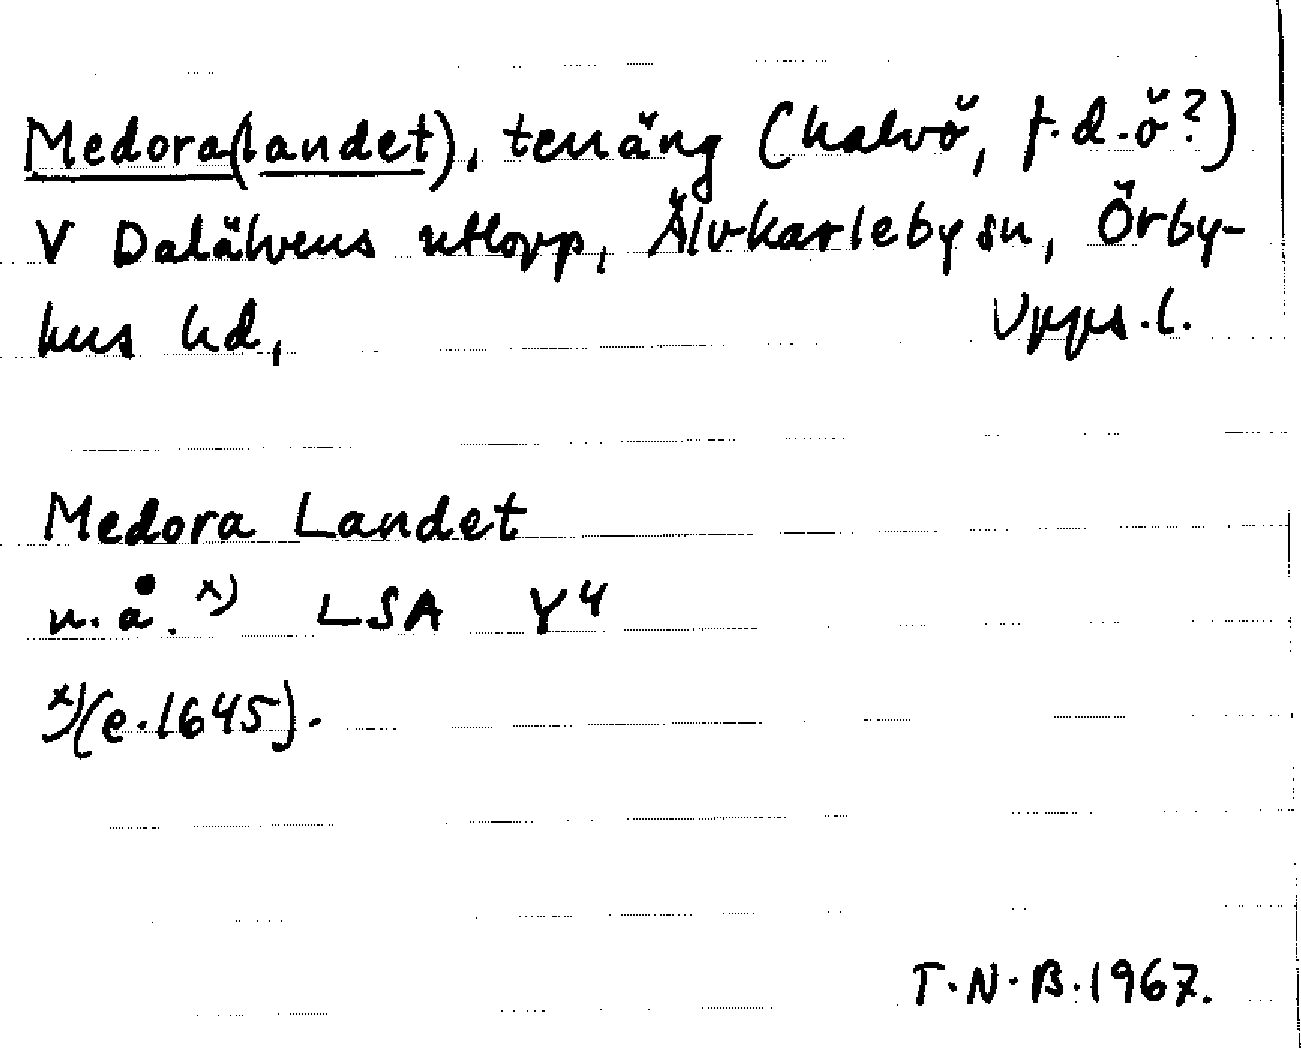 Medora(landet), terräng (halvö, f.d. ö?)
V Dalälvens utlopp, Älvkarleby sn, Örby-
hus hd, Upps. l.
Medora Landet
u. å. x) LSA Y4
x)(e. 1645).
T. N. B. 1967.